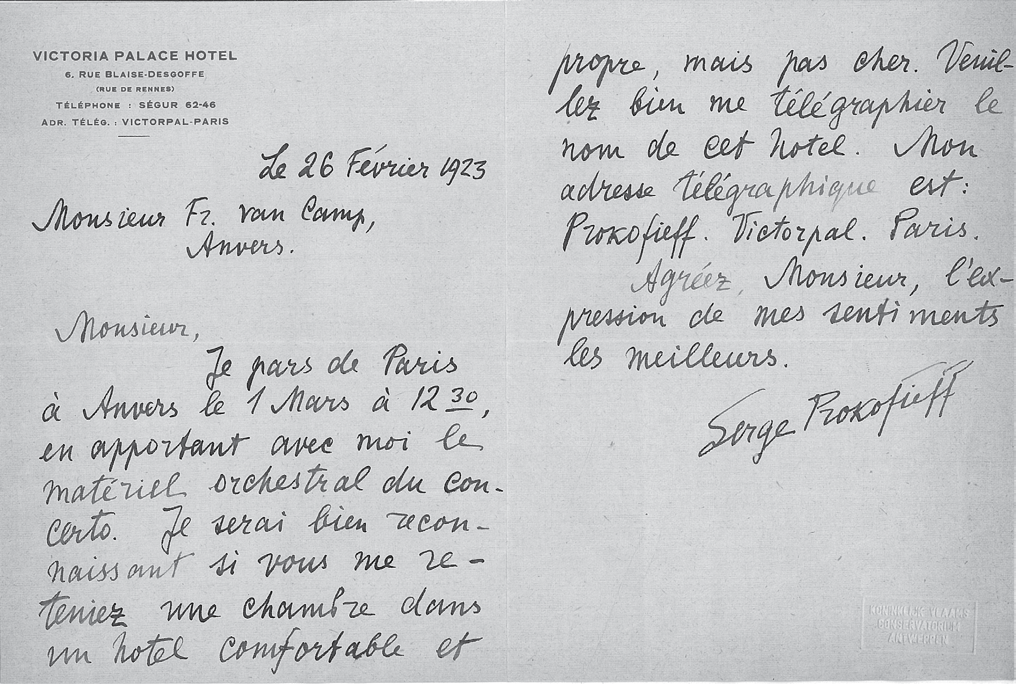 VICTORIA PALACE HOTEL
6, RUE BLAISE-DESGOFFE
(RUE DE RENNES)
TÉLÉPHONE : SÉGUR 62-46
ADR. TÉLÉG. : VICTORPAL-PARIS
Le 26 Février 1923
Monsieur Fr. van Camp,
Anvers.
Monsieur,
Je pars de Paris
à Anvers le 1 Mars à 12 30,
en apportant avec moi le
matériel orchestral du con-
certo. Je serai bien recon-
naissant si vous me re-
teniez une chambre dans
un hotel comfortable et
propre, mais pas cher. Veuil-
lez bien me télégraphier le
nom de cet hotel. Mon
adresse télégraphique est:
Prokofieff. Victorpal. Paris.
Agréez, Monsieur, l'ex-
pression de mes sentiments
les meilleurs.
Serge Prokofieff
KONINKLIJK VLAAMS
CONSERVATORIUM
ANTWERPEN